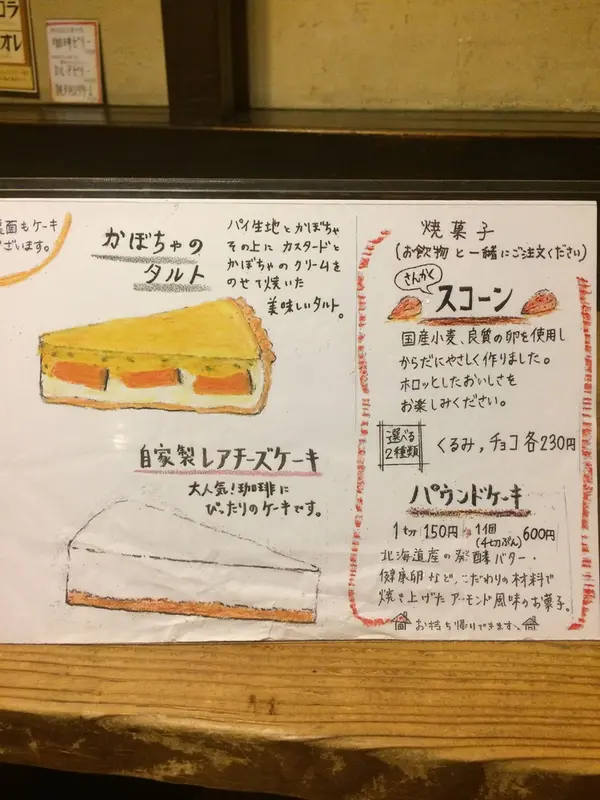 コラ
オレ
珈琲ゼリー
裏面もケーキ
ざいます。
かぼちゃの
タルト
パイ生地とかぼちゃ
その上にカスタードと
かぼちゃのクリームを
のせて焼いた
美味しいタルト。
自家製レアチーズケーキ
大人気!珈琲に
ぴったりのケーキです。
焼菓子
(お飲物と一緒にご注文ください)
さんかく
スコーン
国産小麦、良質の卵を使用し
からだにやさしく作りました。
ホロッとしたおいしさを
お楽しみください。
選べる
2種類
くるみ,チョコ各230円
パウンドケーキ
1切150円・1個(4切ぶん)600円
北海道産の発酵バター・
健康卵など,こだわりの材料で
焼き上げたアーモンド風味のお菓子。
お持ち帰りできます、